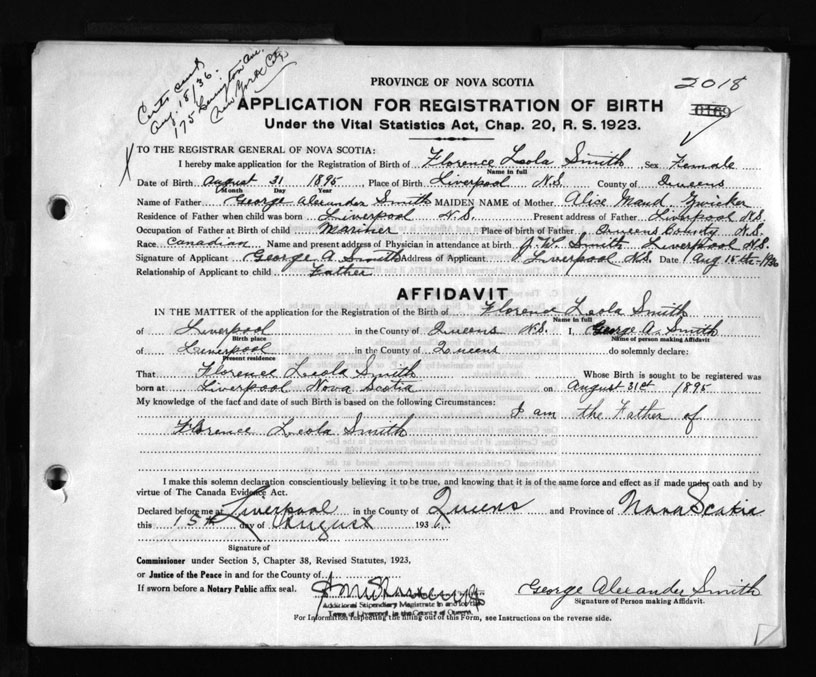 Certs sent
Aug. 18/36.
175 Lexington Av.
New York City.
2018
PROVINCE OF NOVA SCOTIA
APPLICATION FOR REGISTRATION OF BIRTH
Under the Vital Statistics Act, Chap. 20, R. S. 1923.
X TO THE REGISTRAR GENERAL OF NOVA SCOTIA:
I hereby make application for the Registration of Birth of Florence Leola Smith Sex Female
Name in full
Date of Birth August 31 1895 Place of Birth Liverpool N.S. County of Queens
Month Day Year
Name of Father George Alexander Smith MAIDEN NAME of Mother Alice Maud Zwicker
Residence of Father when child was born Liverpool N.S. Present address of Father Liverpool N.S.
Occupation of Father at Birth of child Mariner Place of birth of Father Queens County N.S.
Race Canadian Name and present address of Physician in attendance at birth J. W. Smith Liverpool N.S.
Signature of Applicant George A Smith Address of Applicant Liverpool N.S. Date Aug 15th-1936
Relationship of Applicant to child Father
AFFIDAVIT
IN THE MATTER of the application for the Registration of the Birth of Florence Leola Smith
Name in full
of Liverpool in the County of Queens N.S. I, George A. Smith
Birth place Name of person making Affidavit
of Liverpool in the County of Queens do solemnly declare:
Present residence
That Florence Leola Smith Whose Birth is sought to be registered was
born at Liverpool Nova Scotia on August 31st 1895
My knowledge of the fact and date of such Birth is based on the following Circumstances: I am the Father of
Florence Leola Smith
I make this solemn declaration conscientiously believing it to be true, and knowing that it is of the same force and effect as if made under oath and by
virtue of The Canada Evidence Act.
Declared before me at Liverpool in the County of Queens and Province of Nova Scotia
this 15th day of August 193
Signature of
Commissioner under Section 5, Chapter 38, Revised Statutes, 1923,
or Justice of the Peace in and for the County of
If sworn before a Notary Public affix seal.
George Alexander Smith
Additional Stipendiary Magistrate in and for the
Signature of Person making Affidavit.
Town of Liverpool, in the County of Queens
For Information respecting the filling out of this Form, see Instructions on the reverse side.